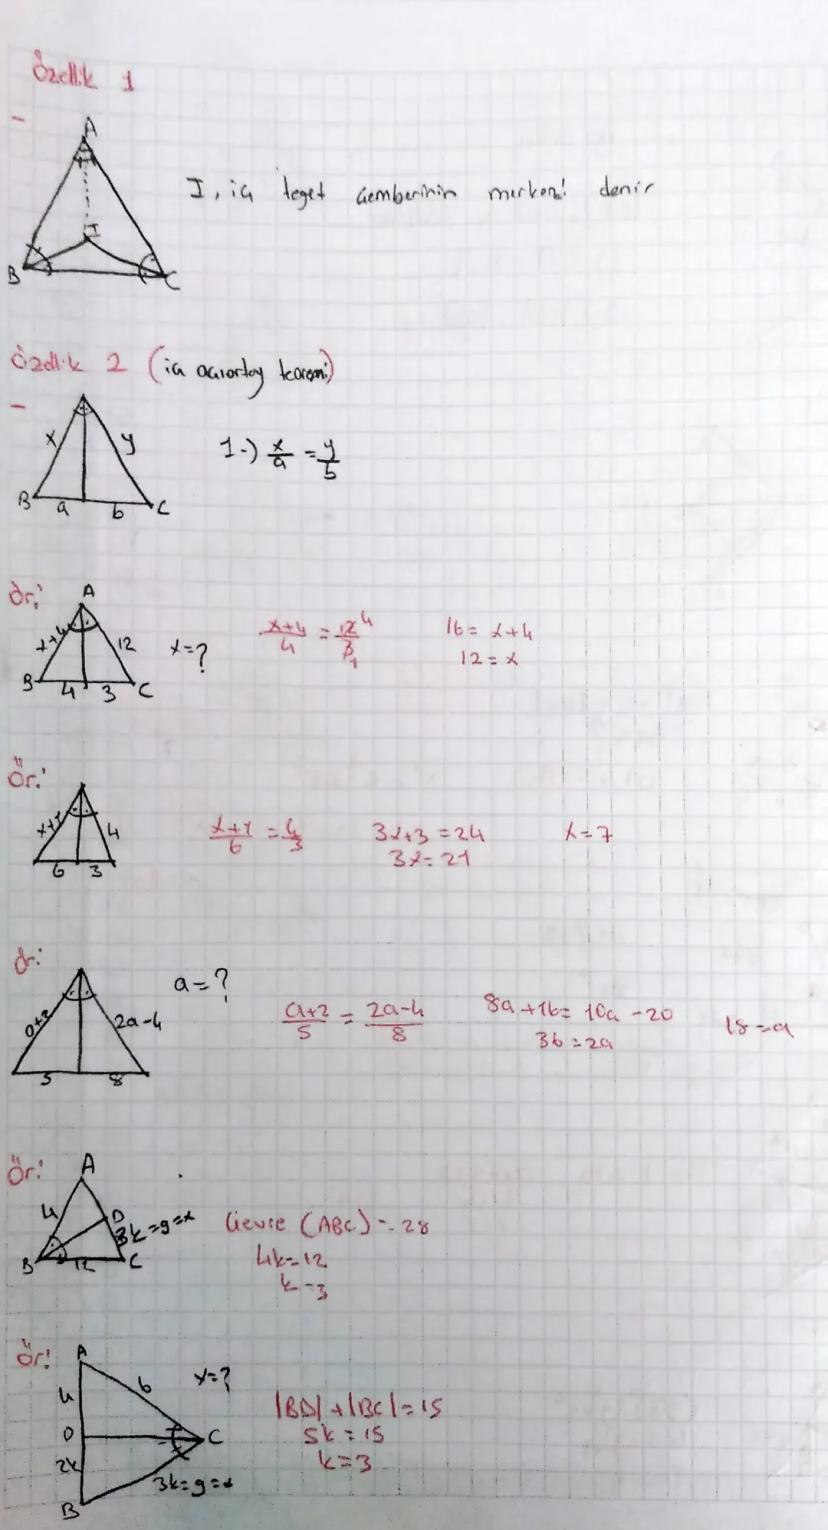 Özellik 1
A
I
B
C
I, iç teğet çemberinin merkezi denir
Özellik 2 (iç açıortay teoremi)
x
y
B
a
b
C
1-) x/a = y/b
Ör:
A
x+4
12
B
4
3
C
x=?
x+4/4 = 12/3 4 1
16 = x+4
12 = x
Ör:
x+1
4
6
3
x+1/6 = 4/3
3x+3 = 24
3x = 21
x = 7
Ör:
a=?
a+2
2a-4
5
8
a+2/5 = 2a-4/8
8a+16 = 10a-20
36 = 2a
18 = a
Ör:
A
4
D
3k=9=x
B
12
C
Çevre (ABC) = 28
4k=12
k=3
Ör:
A
4
6
x=?
D
C
2k
3k=9=x
B
|BD|+|BC|=15
5k=15
k=3